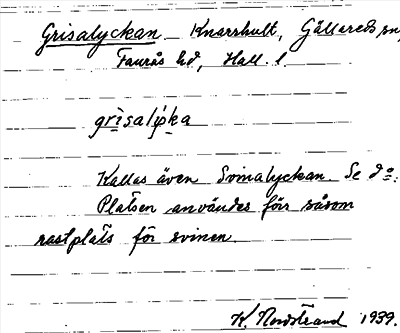 Grisalyckan Knarrhult, Gällareds sn,
Faurås hd, Hall. l.
grisalỿka
Kallas även Svinalyckan. Se d:o.
Platsen användes förr såsom
rastplats för svinen.
K. Nordstrand 1939.